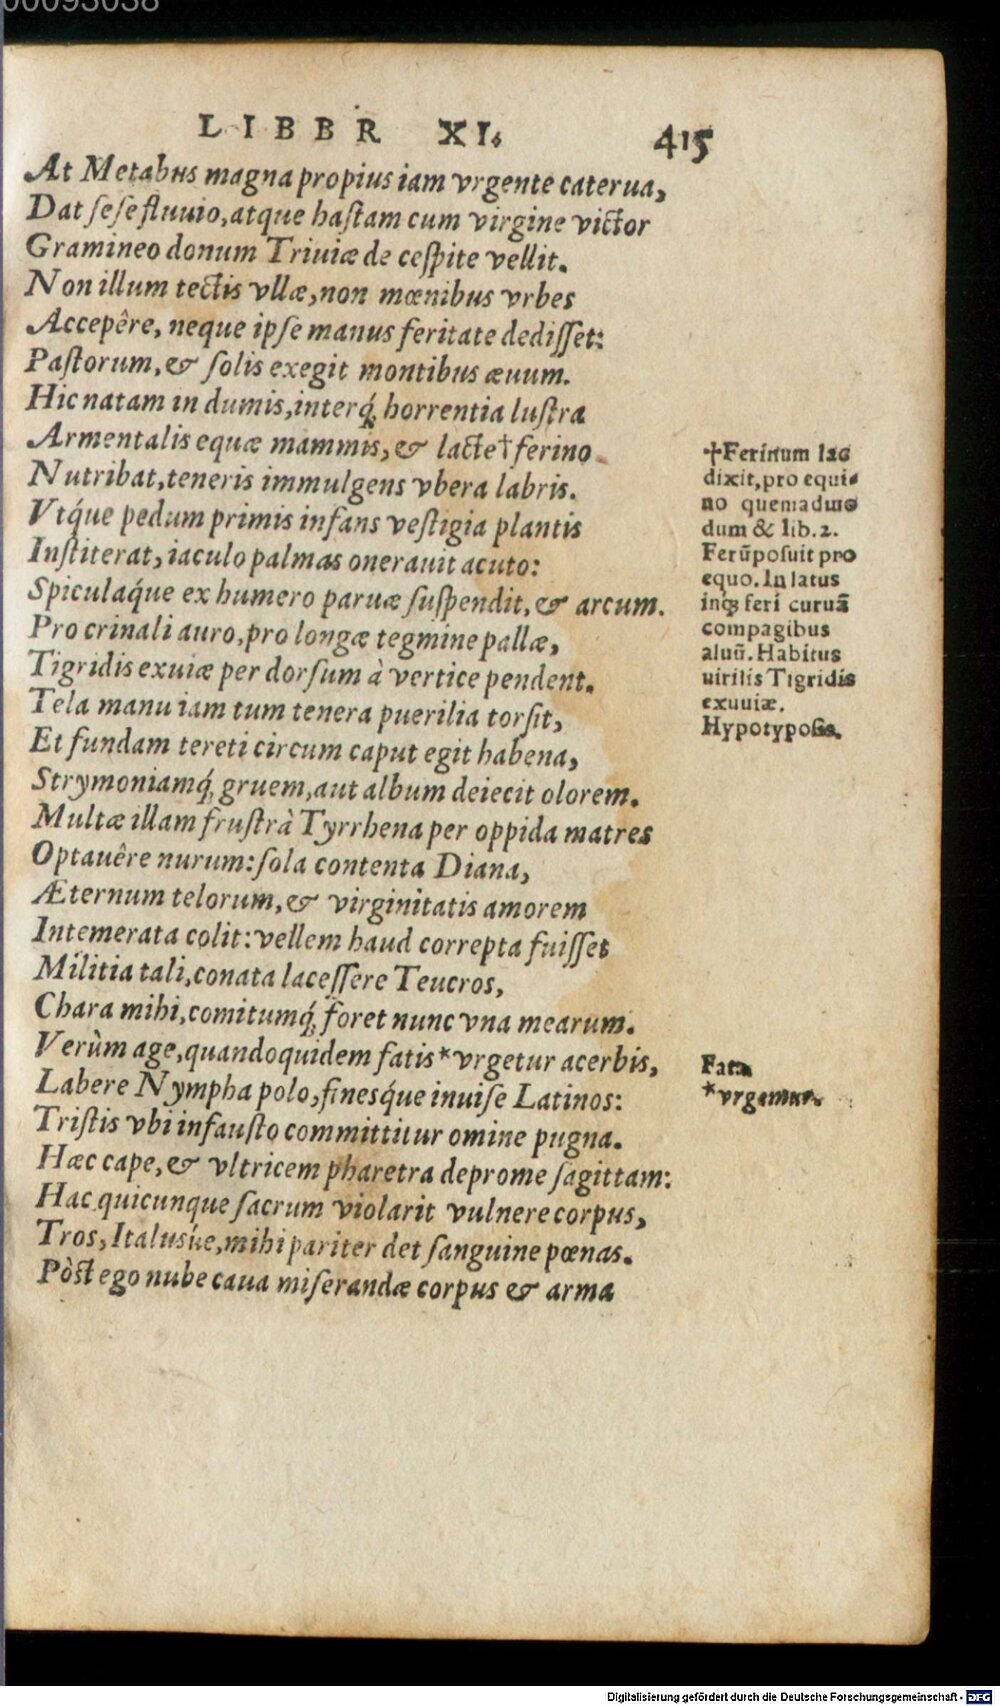 00093038
LIBBR XI. 415
At Metabus magna propius iam vrgente caterua,
Dat ſeſe fluuio, atque haſtam cum virgine victor
Gramineo donum Triuiæ de ceſpite vellit.
Non illum tectis vllæ, non mœnibus vrbes
Accepêre, neque ipſe manus feritate dediſſet:
Paſtorum, & ſolis exegit montibus æuum.
Hic natam in dumis, interq́; horrentia luſtra
Armentalis equæ mammis, & lacte†ferino
Nutribat, teneris immulgens vbera labris.
Vtq́ue pedum primis infans veſtigia plantis
Inſtiterat, iaculo palmas onerauit acuto:
Spiculaq́ue ex humero paruæ ſuſpendit, & arcum.
Pro crinali auro, pro longæ tegmine pallæ,
Tigridis exuiæ per dorſum à vertice pendent.
Tela manu iam tum tenera puerilia torſit,
Et fundam tereti circum caput egit habena,
Strymoniamq́; gruem, aut album deiecit olorem.
Multæ illam fruſtrà Tyrrhena per oppida matres
Optauêre nurum: ſola contenta Diana,
Æternum telorum, & virginitatis amorem
Intemerata colit: vellem haud correpta fuiſſet
Militia tali, conata laceſſere Teucros,
Chara mihi, comitumq́; foret nunc vna mearum.
Verùm age, quandoquidem fatis*vrgetur acerbis,
Labere Nympha polo, finesq́ue inuiſe Latinos:
Triſtis vbi infauſto committitur omine pugna.
Hæc cape, & vltricem pharetra deprome ſagittam:
Hac quicunque ſacrum violarit vulnere corpus,
Tros, Italusúe, mihi pariter det ſanguine pœnas.
Pòſt ego nube caua miſerandæ corpus & arma
†Ferinum lac
dixit, pro equi-
no quemadmo
dum & lib. 2.
Ferū poſuit pro
equo. In latus
inq́; feri curuā
compagibus
aluū. Habitus
uirilis Tigridis
exuuiæ.
Hypotypoſis.
Fata
*vrgemur.
Digitalisierung gefördert durch die Deutsche Forschungsgemeinschaft - DFG